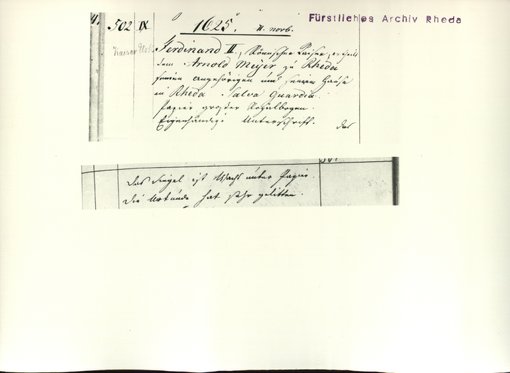 Fürstliches Archiv Rheda
502 IX 1625. II. novb.
Ferdinand II, Römischer Kaiser, ertheilt
dem Arnold Meijer zu Rheda
seinen angehörigen und seinem Hause
in Rheda Salva Guardia.
Papier großer Royalbogen.
Eigenhändige Unterschrift. Das
Das Siegel ist Wachs unter Papier.
Die Urkunde hat sehr gelitten.